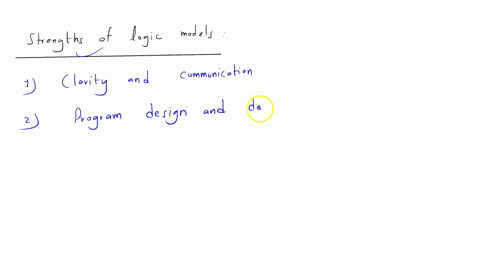 Strengths of logic models :
1) Clarity and communication
2) Program design and de